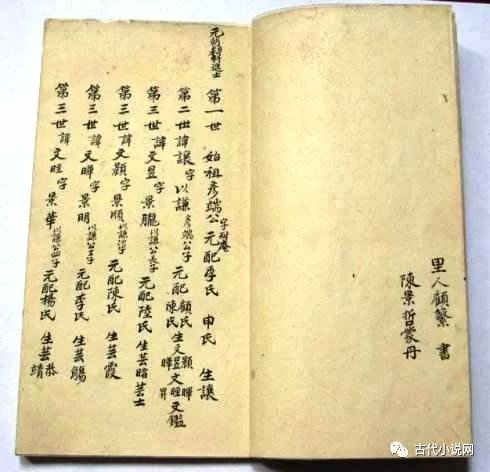 里人顧蘩 書
陳景哲蒙丹
第一世 始祖彥端公 字耐庵 元配季氏 申氏 生讓
第二世諱讓字以謙 彥端公子 元配顧氏 陳氏 生文昱
第三世諱文昱字景朧 以謙公長子 元配陸氏 生芸曙芸士
第三世諱文顥字景順 以謙公次子 元配陳氏 生芸霞
第三世諱文曄字景明 以謙公三子 元配李氏 生芸觴
第三世諱文暄字景華 以謙公四子 元配楊氏 生芸恭靖
古代小说网